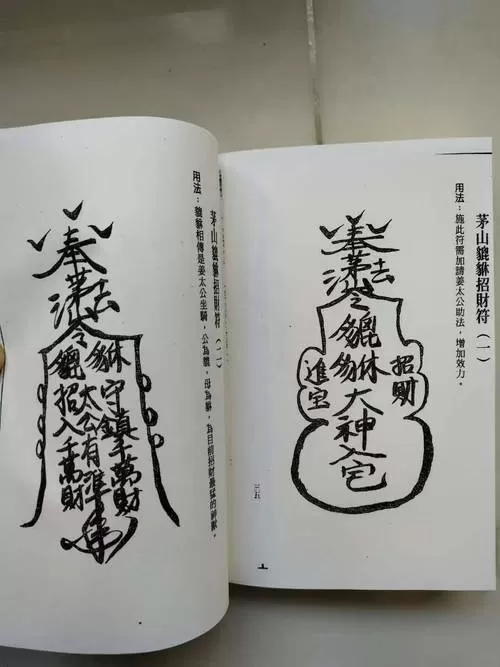 茅山貔貅招財符（一）
用法：施此符需加請姜太公助法，增加效力。
奉茅山法令
貔貅大神入宅
招财
進宝
三〇五
茅山貔貅招財符（二）
用法：貔貅相傳是姜太公坐騎，公為貔，母為貅，為目前招財最猛的神獸。
奉茅山法令
貅守鎮千萬財
太公有准
貔招入千萬財